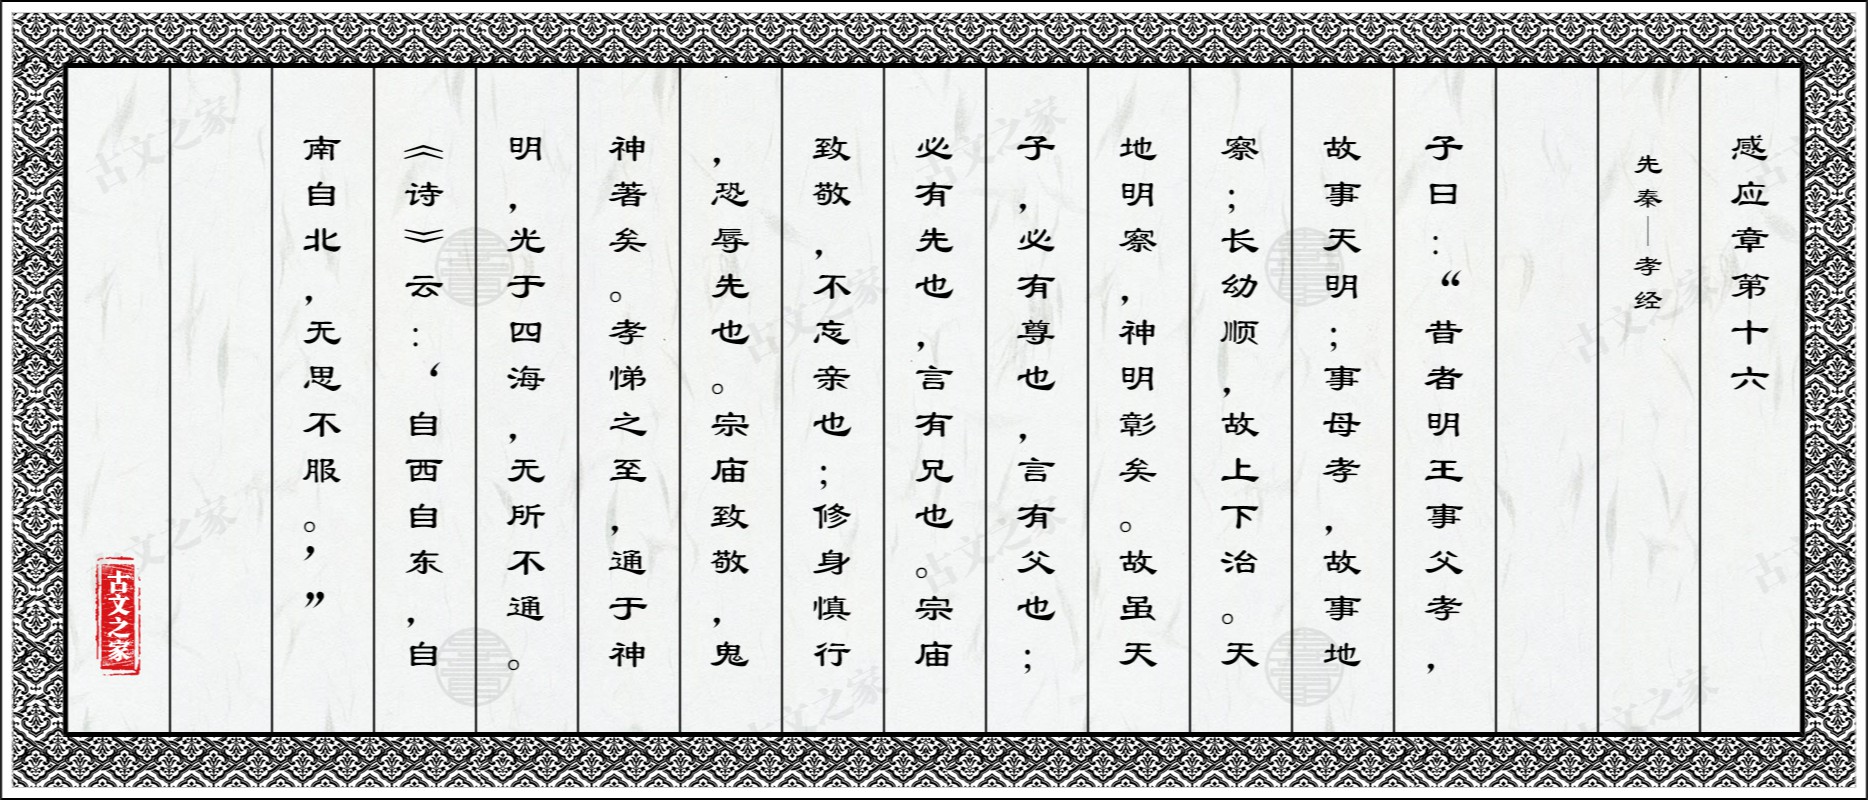 感应章第十六
先秦—孝经
子曰：“昔者明王事父孝，
故事天明；事母孝，故事地
察；长幼顺，故上下治。天
地明察，神明彰矣。故虽天
子，必有尊也，言有父也；
必有先也，言有兄也。宗庙
致敬，不忘亲也；修身慎行
，恐辱先也。宗庙致敬，鬼
神著矣。孝悌之至，通于神
明，光于四海，无所不通。
《诗》云：‘自西自东，自
南自北，无思不服。’”
古文之家